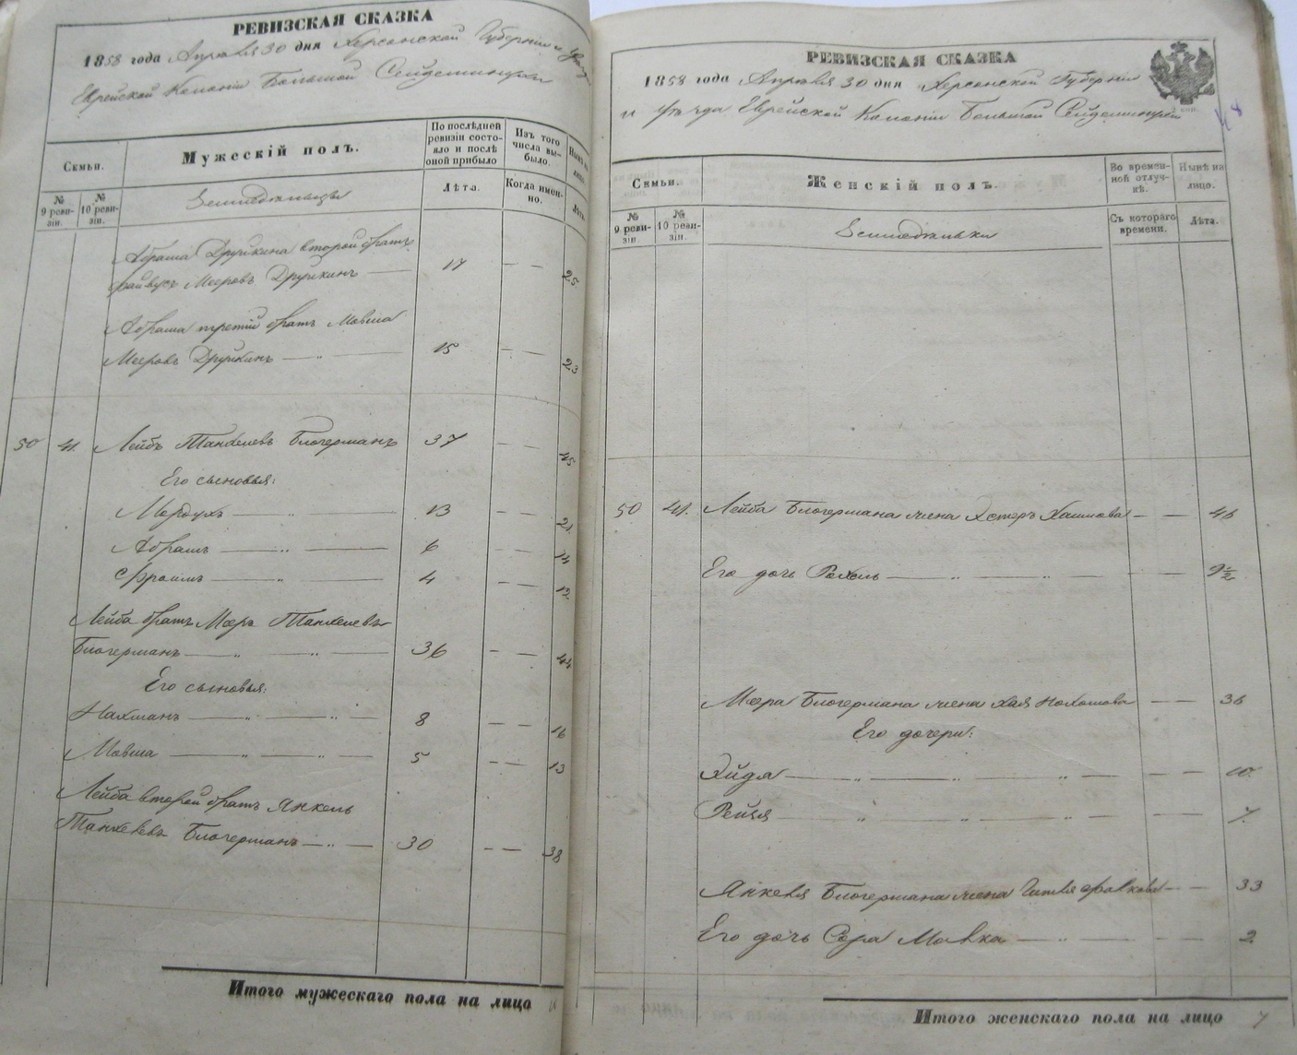 РЕВИЗСКАЯ СКАЗКА
1858 года Апреля 30 дня Херсонской Губернии и
Еврейской Колоніи Большой Сейдеминухи
Семьи.
Мужескій полъ.
По послѣдней
ревизіи состо-
яло и послѣ
оной прибыло
Изъ того
числа вы-
было.
№
9 реви-
зіи.
№
10 реви-
зіи.
Лѣта.
Когда имен-
но.
Абраша Друйкина второй братъ
Файвусъ Мееровъ Друйкинъ 17 25
Абраша третій братъ Мовша
Мееровъ Друйкинъ 15 23
50 41. Лейбъ Танхелевъ Блогерманъ 37 45
Его сыновья:
Мордухъ 13 21
Абрамъ 6 14
Фроимъ 4 12
Лейба братъ Мееръ Танхелевъ
Блогерманъ 36 44
Его сыновья:
Нахманъ 8 16
Мовша 5 13
Лейба второй братъ Янкель
Танхелевъ Блогерманъ 30 38
Итого мужескаго пола на лицо
РЕВИЗСКАЯ СКАЗКА
1858 года Апреля 30 дня Херсонской Губерніи
и уѣзда Еврейской Колоніи Большой Сейдеминухи
Семьи.
Женскій полъ.
Во времен-
ной отлуч-
кѣ.
Нынѣ на
лицо.
№
9 реви-
зіи.
№
10 реви-
зіи.
Съ котораго
времени.
Лѣта.
50 41. Лейба Блогермана жена Эстеръ Хаимова 46
Его дочь Рохель 9½
Меера Блогермана жена Хая Нохимова 36
Его дочери:
Эйдя 10.
Рейзя 7.
Янкеля Блогермана жена Гитля 33
Его дочь Сора Мовка 2
Итого женскаго пола на лицо 7